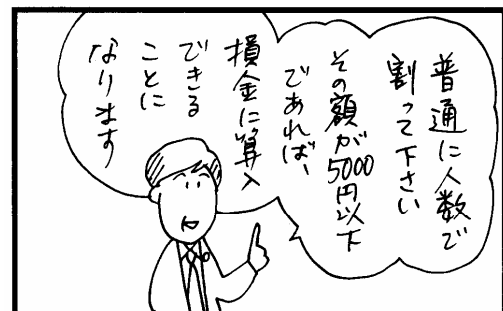 普通に人数で
割って下さい
その額が5000円以下
であれば、
損金に算入
できる
ことに
なります